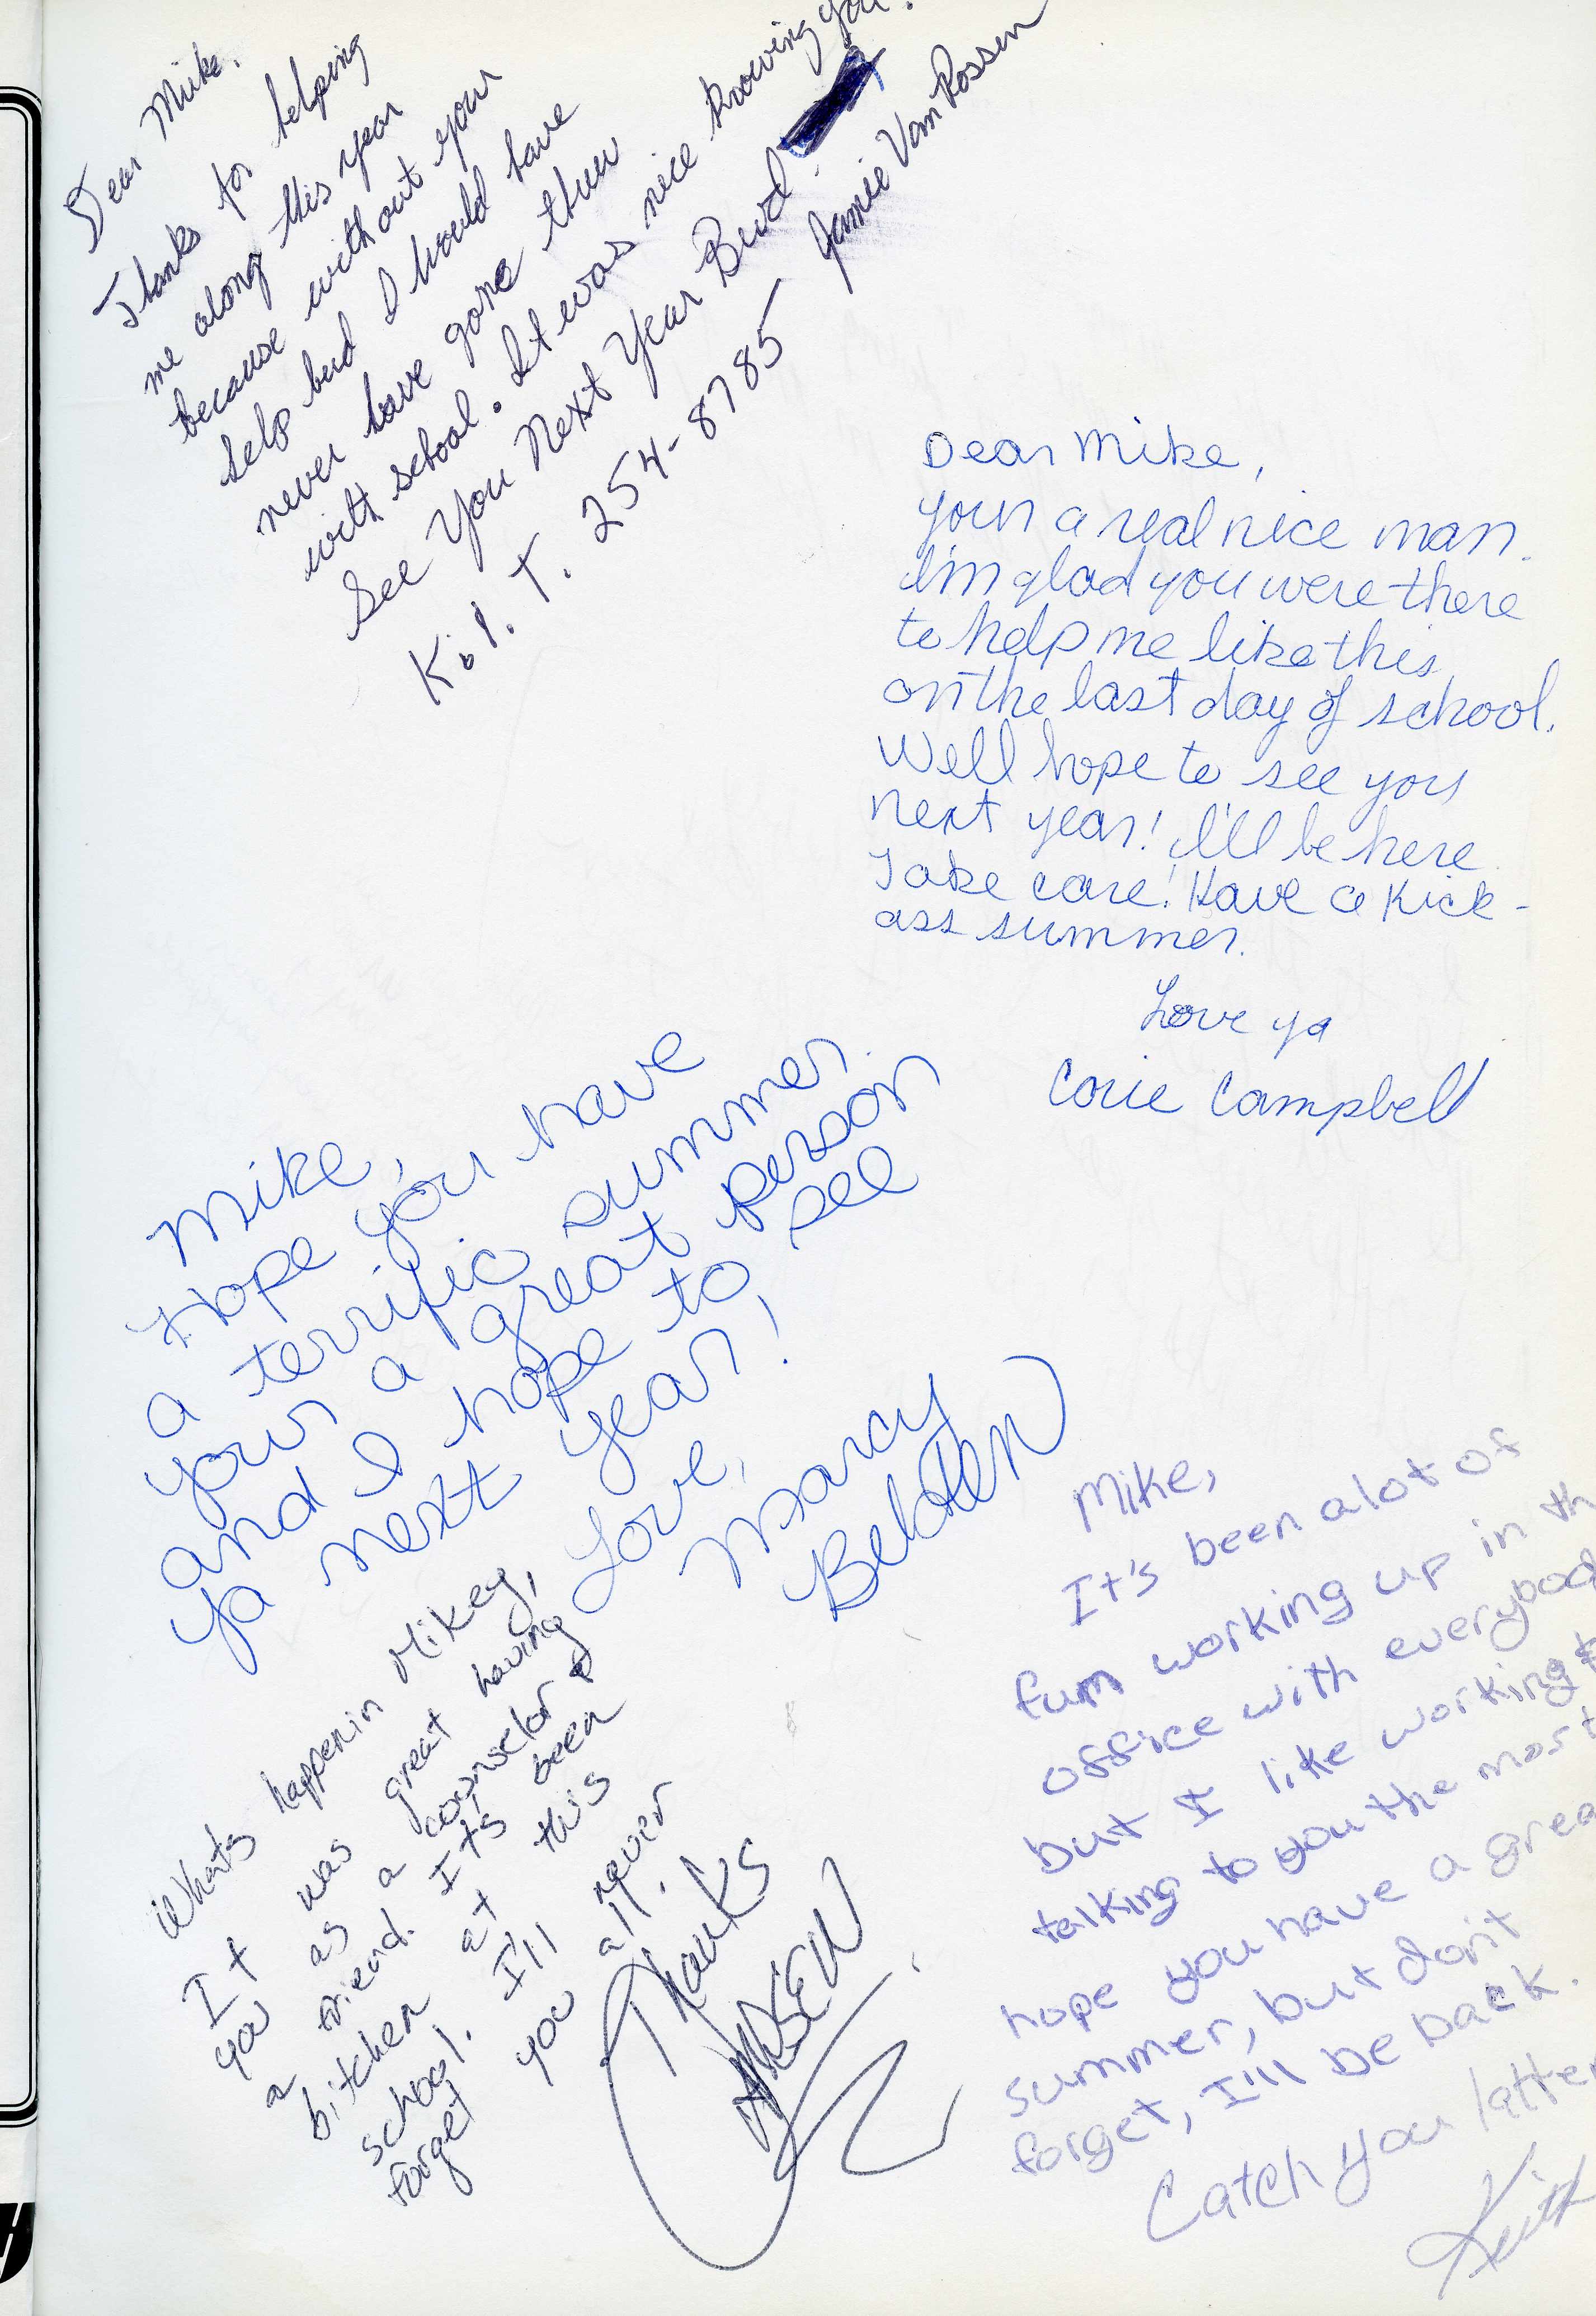 Dear Mike,
Thanks for helping
me along this year
because without your
help bud I would have
never have gone thru
with school. It was nice knowing you!
See You Next Year Bud.
K.I.T. 254-8785 Jamie Van Rossen
Dear Mike,
your a real nice man.
I'm glad you were there
to help me like this
on the last day of school.
Well hope to see you
next year! I'll be here.
Take care! Have a kick-
ass summer.
Love ya
Corie Campbell
Mike,
Hope you have
a terrific summer.
your a great person
and I hope to see
ya next year!
Love,
Marcy
Mike,
It's been alot of
fum working up in th
office with everybod
but I like working
talking to you the most
hope you have a grea
summer, but don't
forget, I'll be back.
Catch you latter
Keith
Whats happenin Mikey,
It was great having
you as a counselor &
a friend. It's been
bitchen at this
school. I'll never
forget you all.
Thanks